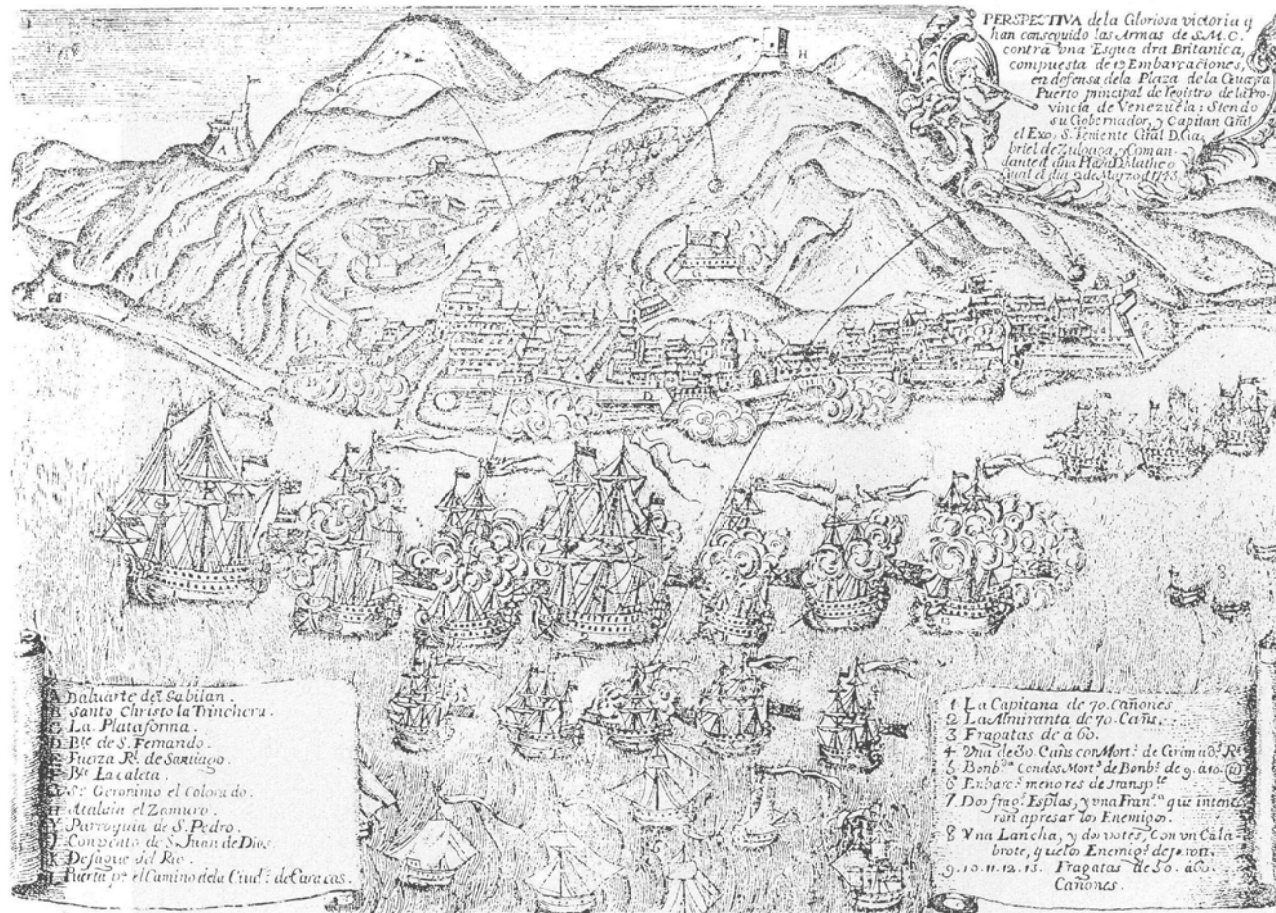 PERSPECTIVA dela Gloriosa victoria q
han conseguido las Armas de S.M.C.
contra vna Esqua dra Britanica,
compuesta de 19 Embarcaciones,
en defensa dela Plaza de la Guayra
Puerto principal de registro de la Pro-
vincia de Venezuela: Siendo
su Gobernador, y Capitan Gñal
el Exo, S. Teniente Gñal D. Ga-
briel de Zuloaga, y Coman-
dante d dña Plaza D. Matheo
Gual el dia 2 de Marzo d 1743.
H
A
D
A Baluarte del Gabilan.
Santo Christo la Trinchera.
La Plataforma.
D Bte de S. Fernando.
Fuerza Rl. de Santiago.
Bte La caleta.
Sn Geronimo el Colorado.
H Atalaia el Zamuro.
Parroquia de S. Pedro.
J Convento de S. Juan de Dios.
K Desague del Rio.
L Puerta pa el Camino dela Ciud. de Caracas.
1 La Capitana de 70. Cañones.
2 La Almiranta de 70. Cañs.
3 Fragatas de a 60.
4 Vna de 30. Cañs con Mort.s de
5 Bonb.da Con dos Mort.s de Bonb.s de 9. a 10.
6 Enbarc.s menores de transp.te
7 Dos frag.s Esplas, y vna Fran.sa que inten-
ron apresar los Enemigos.
8 Vna Lancha, y dos votes, Con vn Cala-
brote, q uelos Enemig.s dejaron.
9. 10. 11. 12. 13. Fragatas de 50. a 60.
Cañones.